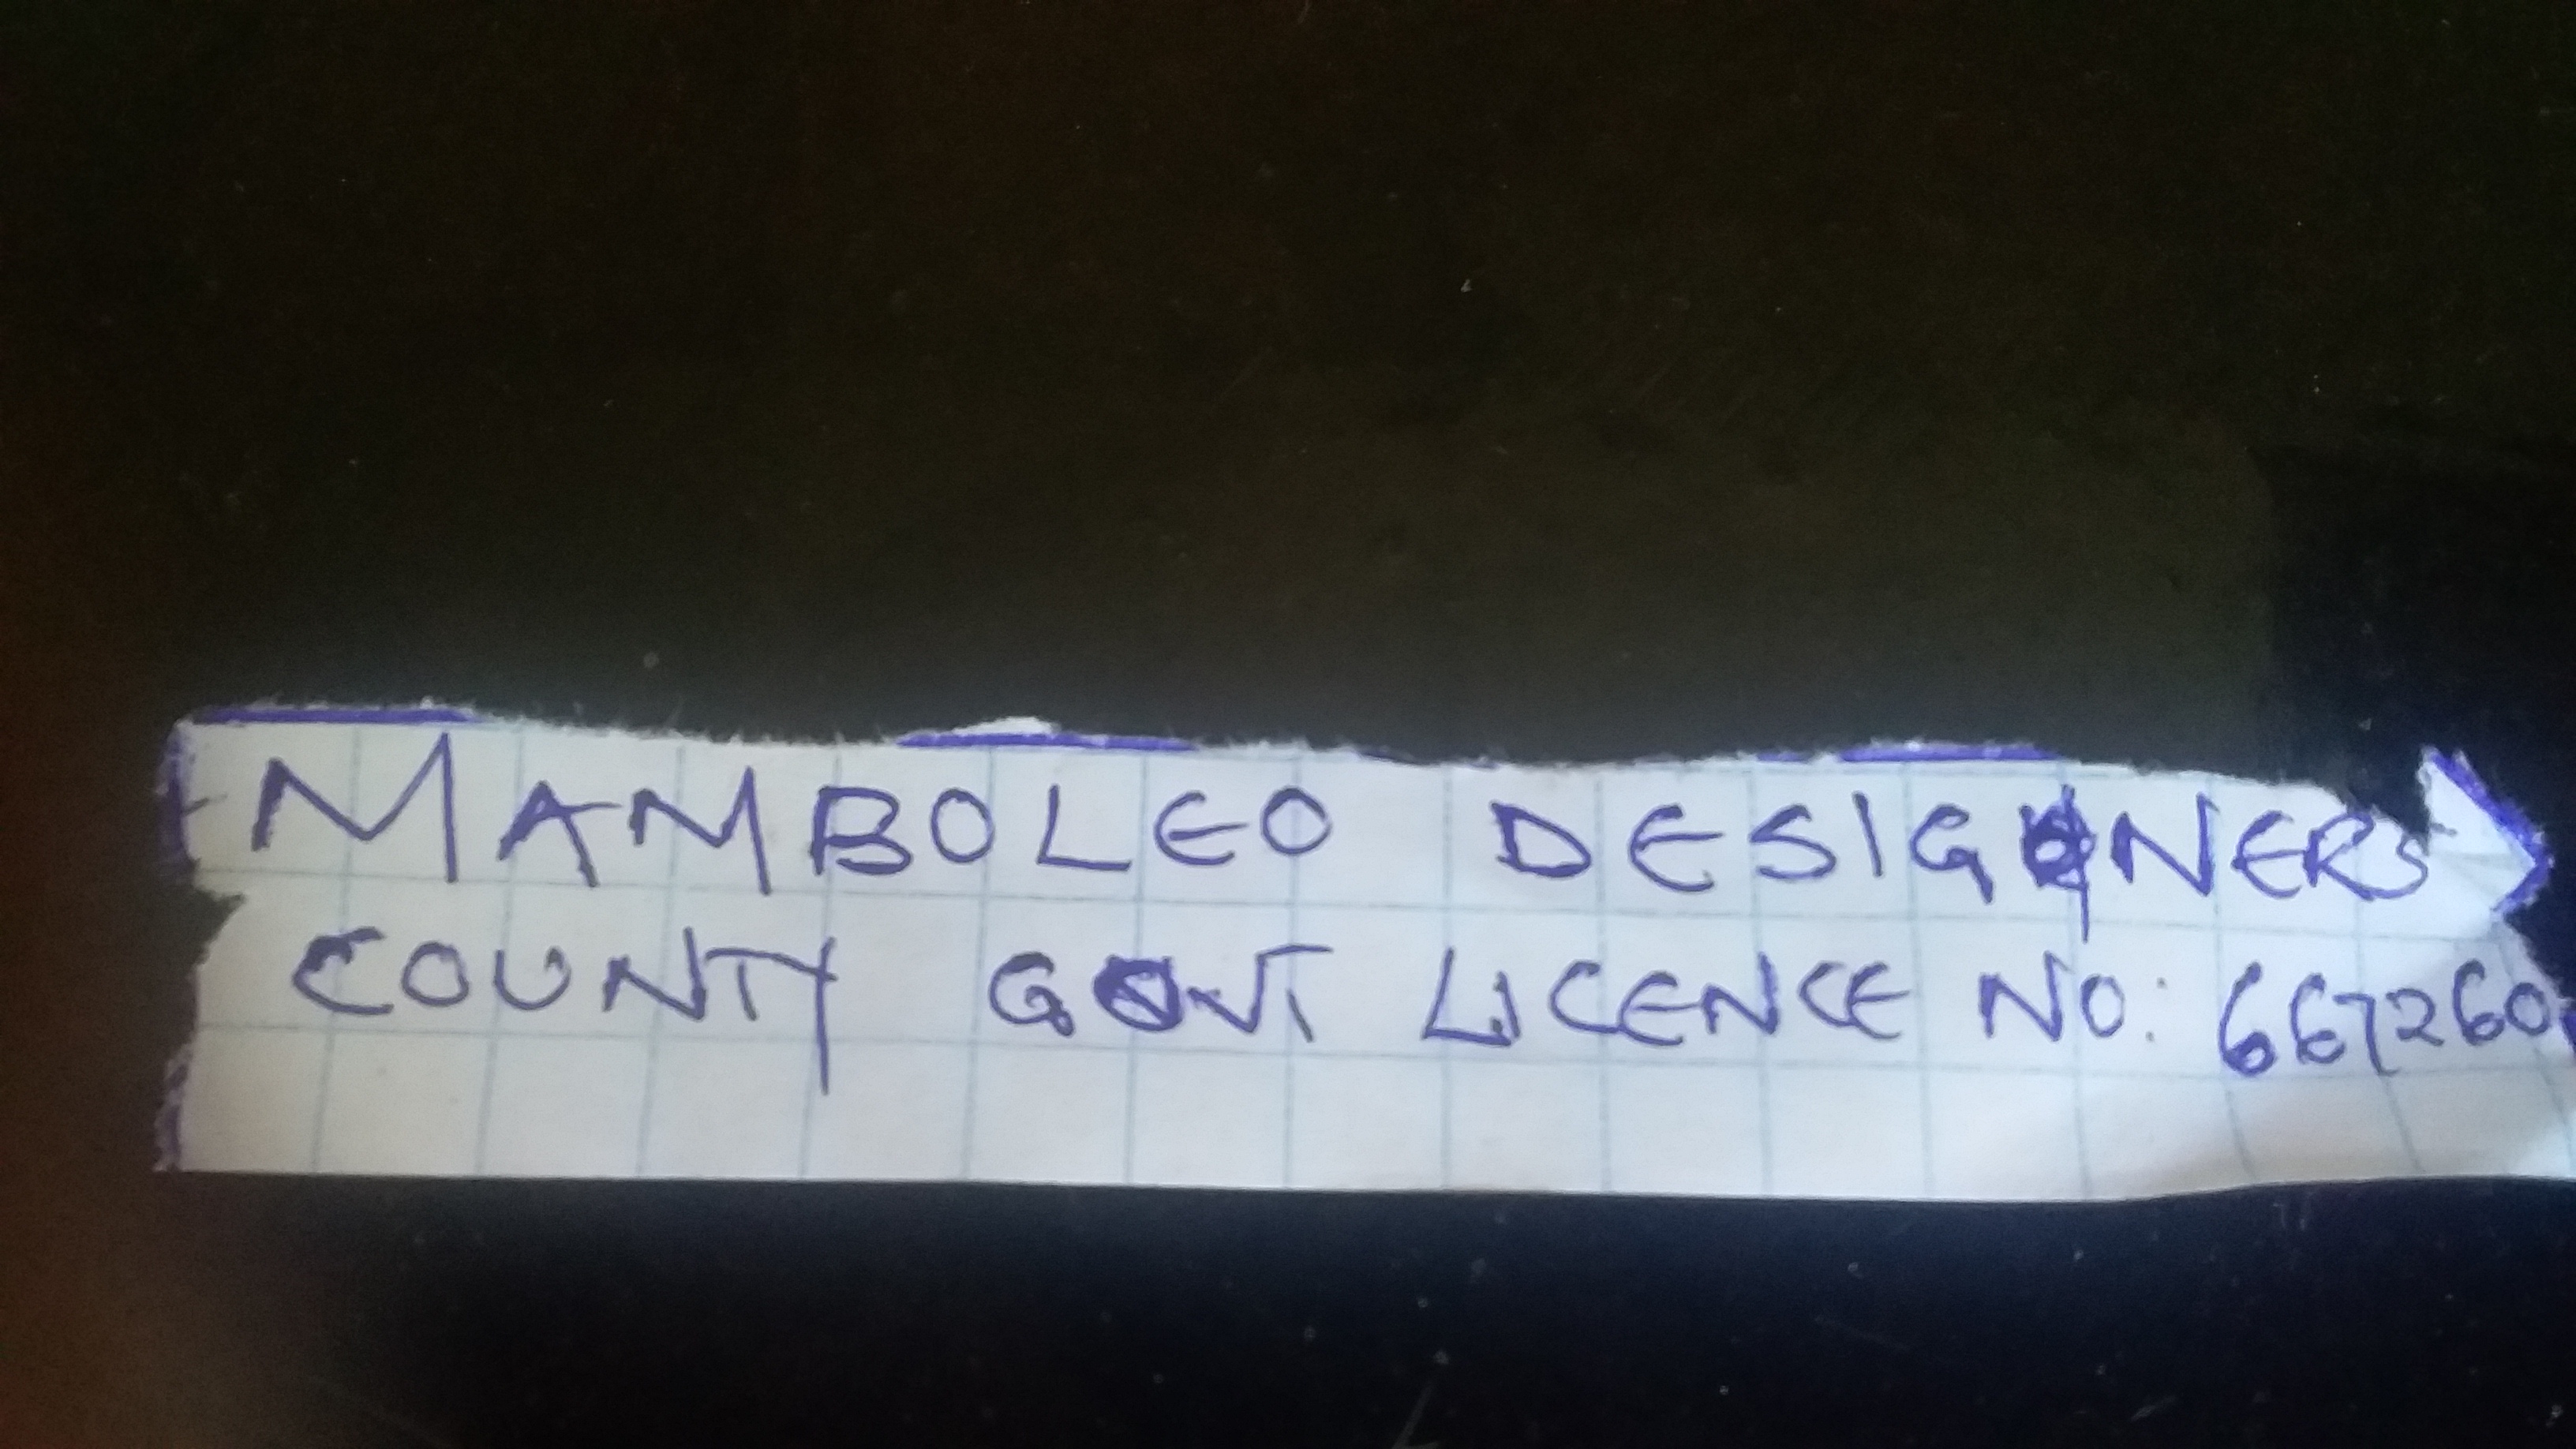 MAMBOLEO DESIGNERS
COUNTY GOVT LICENCE NO: 667260